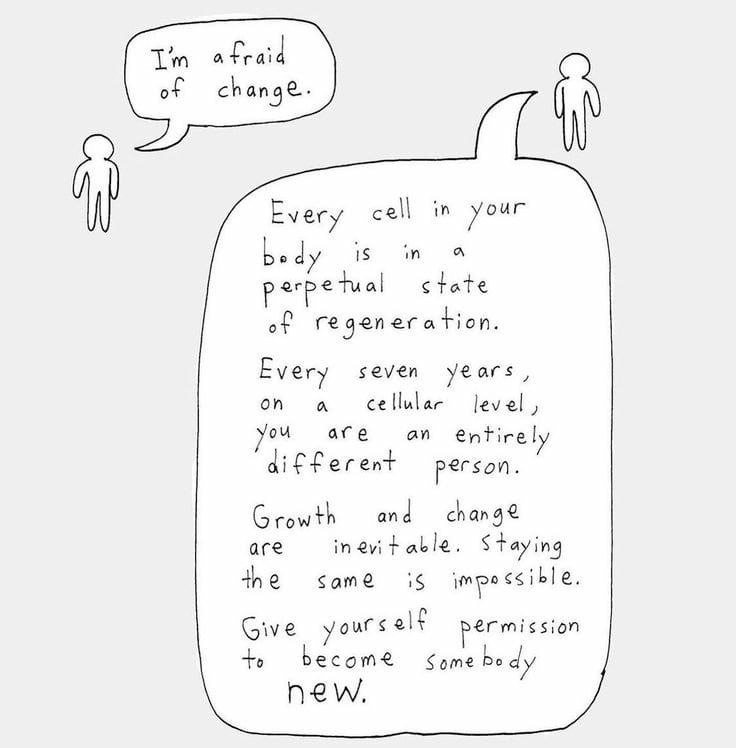 I'm afraid
of change.
Every cell in your
body is in a
perpetual state
of regeneration.
Every seven years,
on a cellular level,
you are an entirely
different person.
Growth and change
are inevitable. Staying
the same is impossible.
Give yourself permission
to become somebody
new.